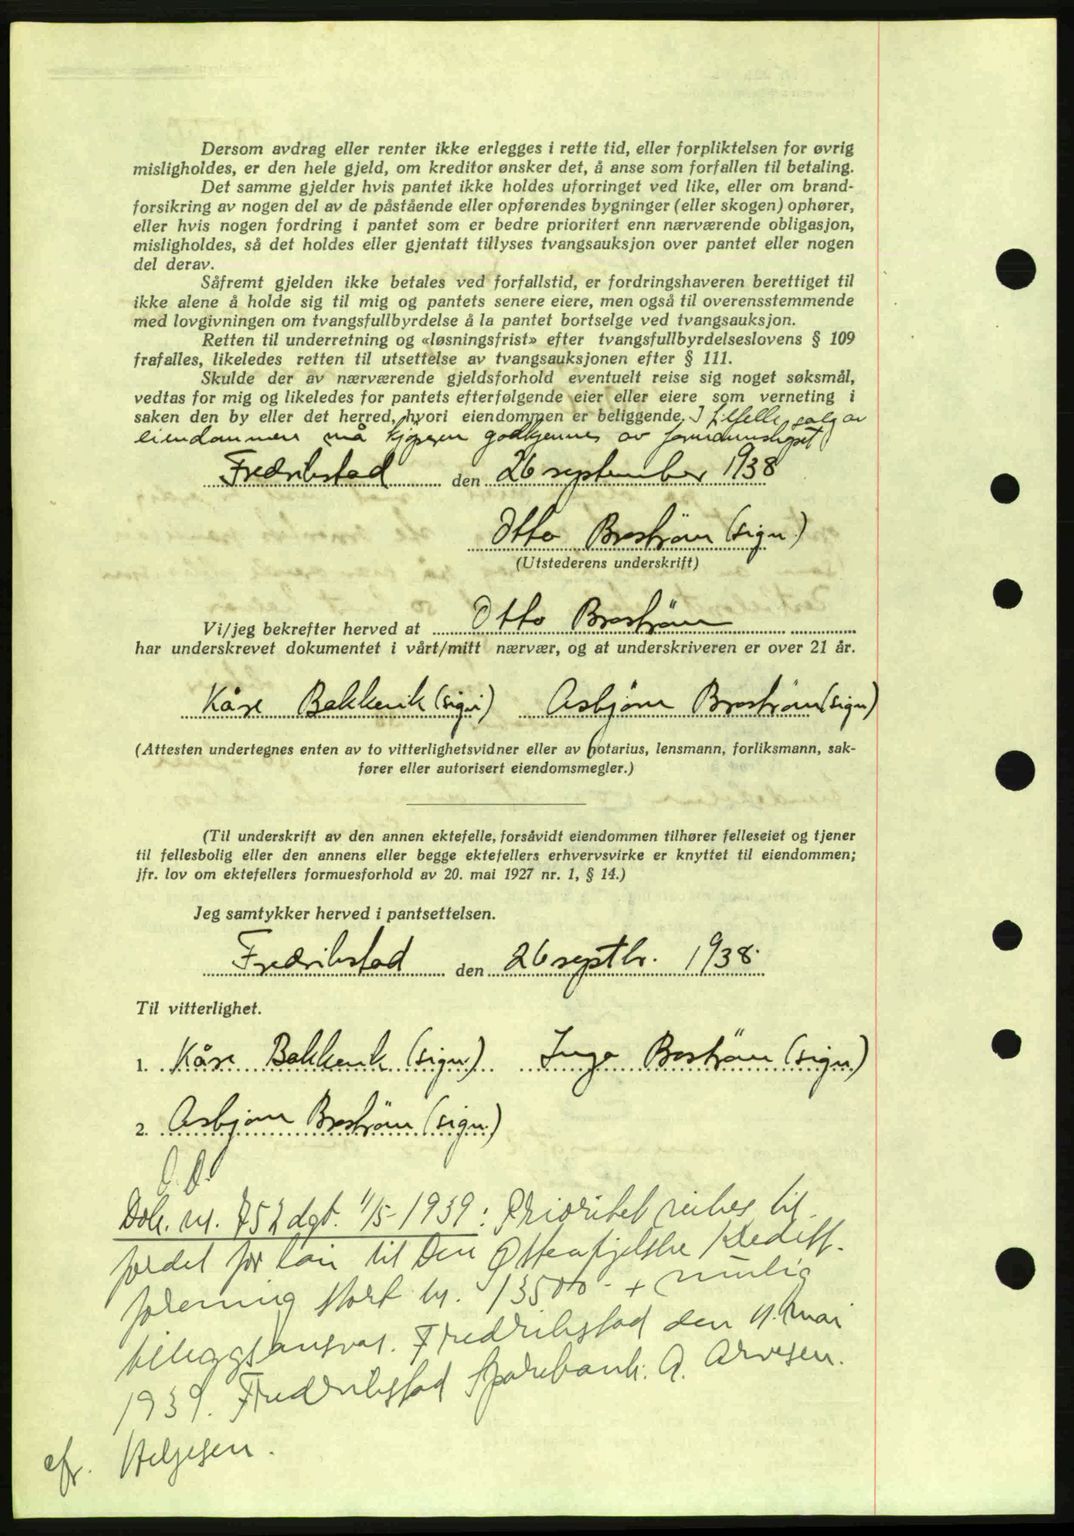 Dersom avdrag eller renter ikke erlegges i rette tid, eller forpliktelsen for øvrig
misligholdes, er den hele gjeld, om kreditor ønsker det, å anse som forfallen til betaling.
Det samme gjelder hvis pantet ikke holdes uforringet ved like, eller om brand-
forsikring av nogen del av de påstående eller opførendes bygninger (eller skogen) ophører,
eller hvis nogen fordring i pantet som er bedre prioritert enn nærværende obligasjon,
misligholdes, så det holdes eller gjentatt tillyses tvangsauksjon over pantet eller nogen
del derav.
Såfremt gjelden ikke betales ved forfallstid, er fordringshaveren berettiget til
ikke alene å holde sig til mig og pantets senere eiere, men også til overensstemmende
med lovgivningen om tvangsfullbyrdelse å la pantet bortselge ved tvangsauksjon.
Retten til underretning og «løsningsfrist» efter tvangsfullbyrdelseslovens § 109
frafalles, likeledes retten til utsettelse av tvangsauksjonen efter § 111.
Skulde der av nærværende gjeldsforhold eventuelt reise sig noget søksmål,
vedtas for mig og likeledes for pantets efterfølgende eier eller eiere som verneting i
saken den by eller det herred, hvori eiendommen er beliggende. I tilfelle salg av
eiendommen må kjøperen godkjennes av formannskapet
Fredrikstad den 26 september 1938
Otto Broström (sign.)
(Utstederens underskrift)
Vi/jeg bekrefter herved at Otto Broström
har underskrevet dokumentet i vårt/mitt nærvær, og at underskriveren er over 21 år.
Kåre Bakkevik (sign) Asbjørn Broström (sign)
(Attesten undertegnes enten av to vitterlighetsvidner eller av notarius, lensmann, forliksmann, sak-
fører eller autorisert eiendomsmegler.)
(Til underskrift av den annen ektefelle, forsåvidt eiendommen tilhører felleseiet og tjener
til fellesbolig eller den annens eller begge ektefellers erhvervsvirke er knyttet til eiendommen;
jfr. lov om ektefellers formuesforhold av 20. mai 1927 nr. 1, § 14.)
Jeg samtykker herved i pantsettelsen.
Fredrikstad den 26 septbr. 1938.
Til vitterlighet.
1. Kåre Bakkevik (sign.) Inga Broström (sign.)
2. Asbjørn Broström (sign.)
Dok. nr. 752 dgt. 11/5-1939: Prioritet vikes til
fordel for lån til Den Østenfjelske Kreditt-
forening stort kr. 13500.- + mulig
tilleggsansvar. Fredrikstad den 11. mai
1939. Fredrikstad Sparebank. A. Arvesen.
cfr. Helgesen.